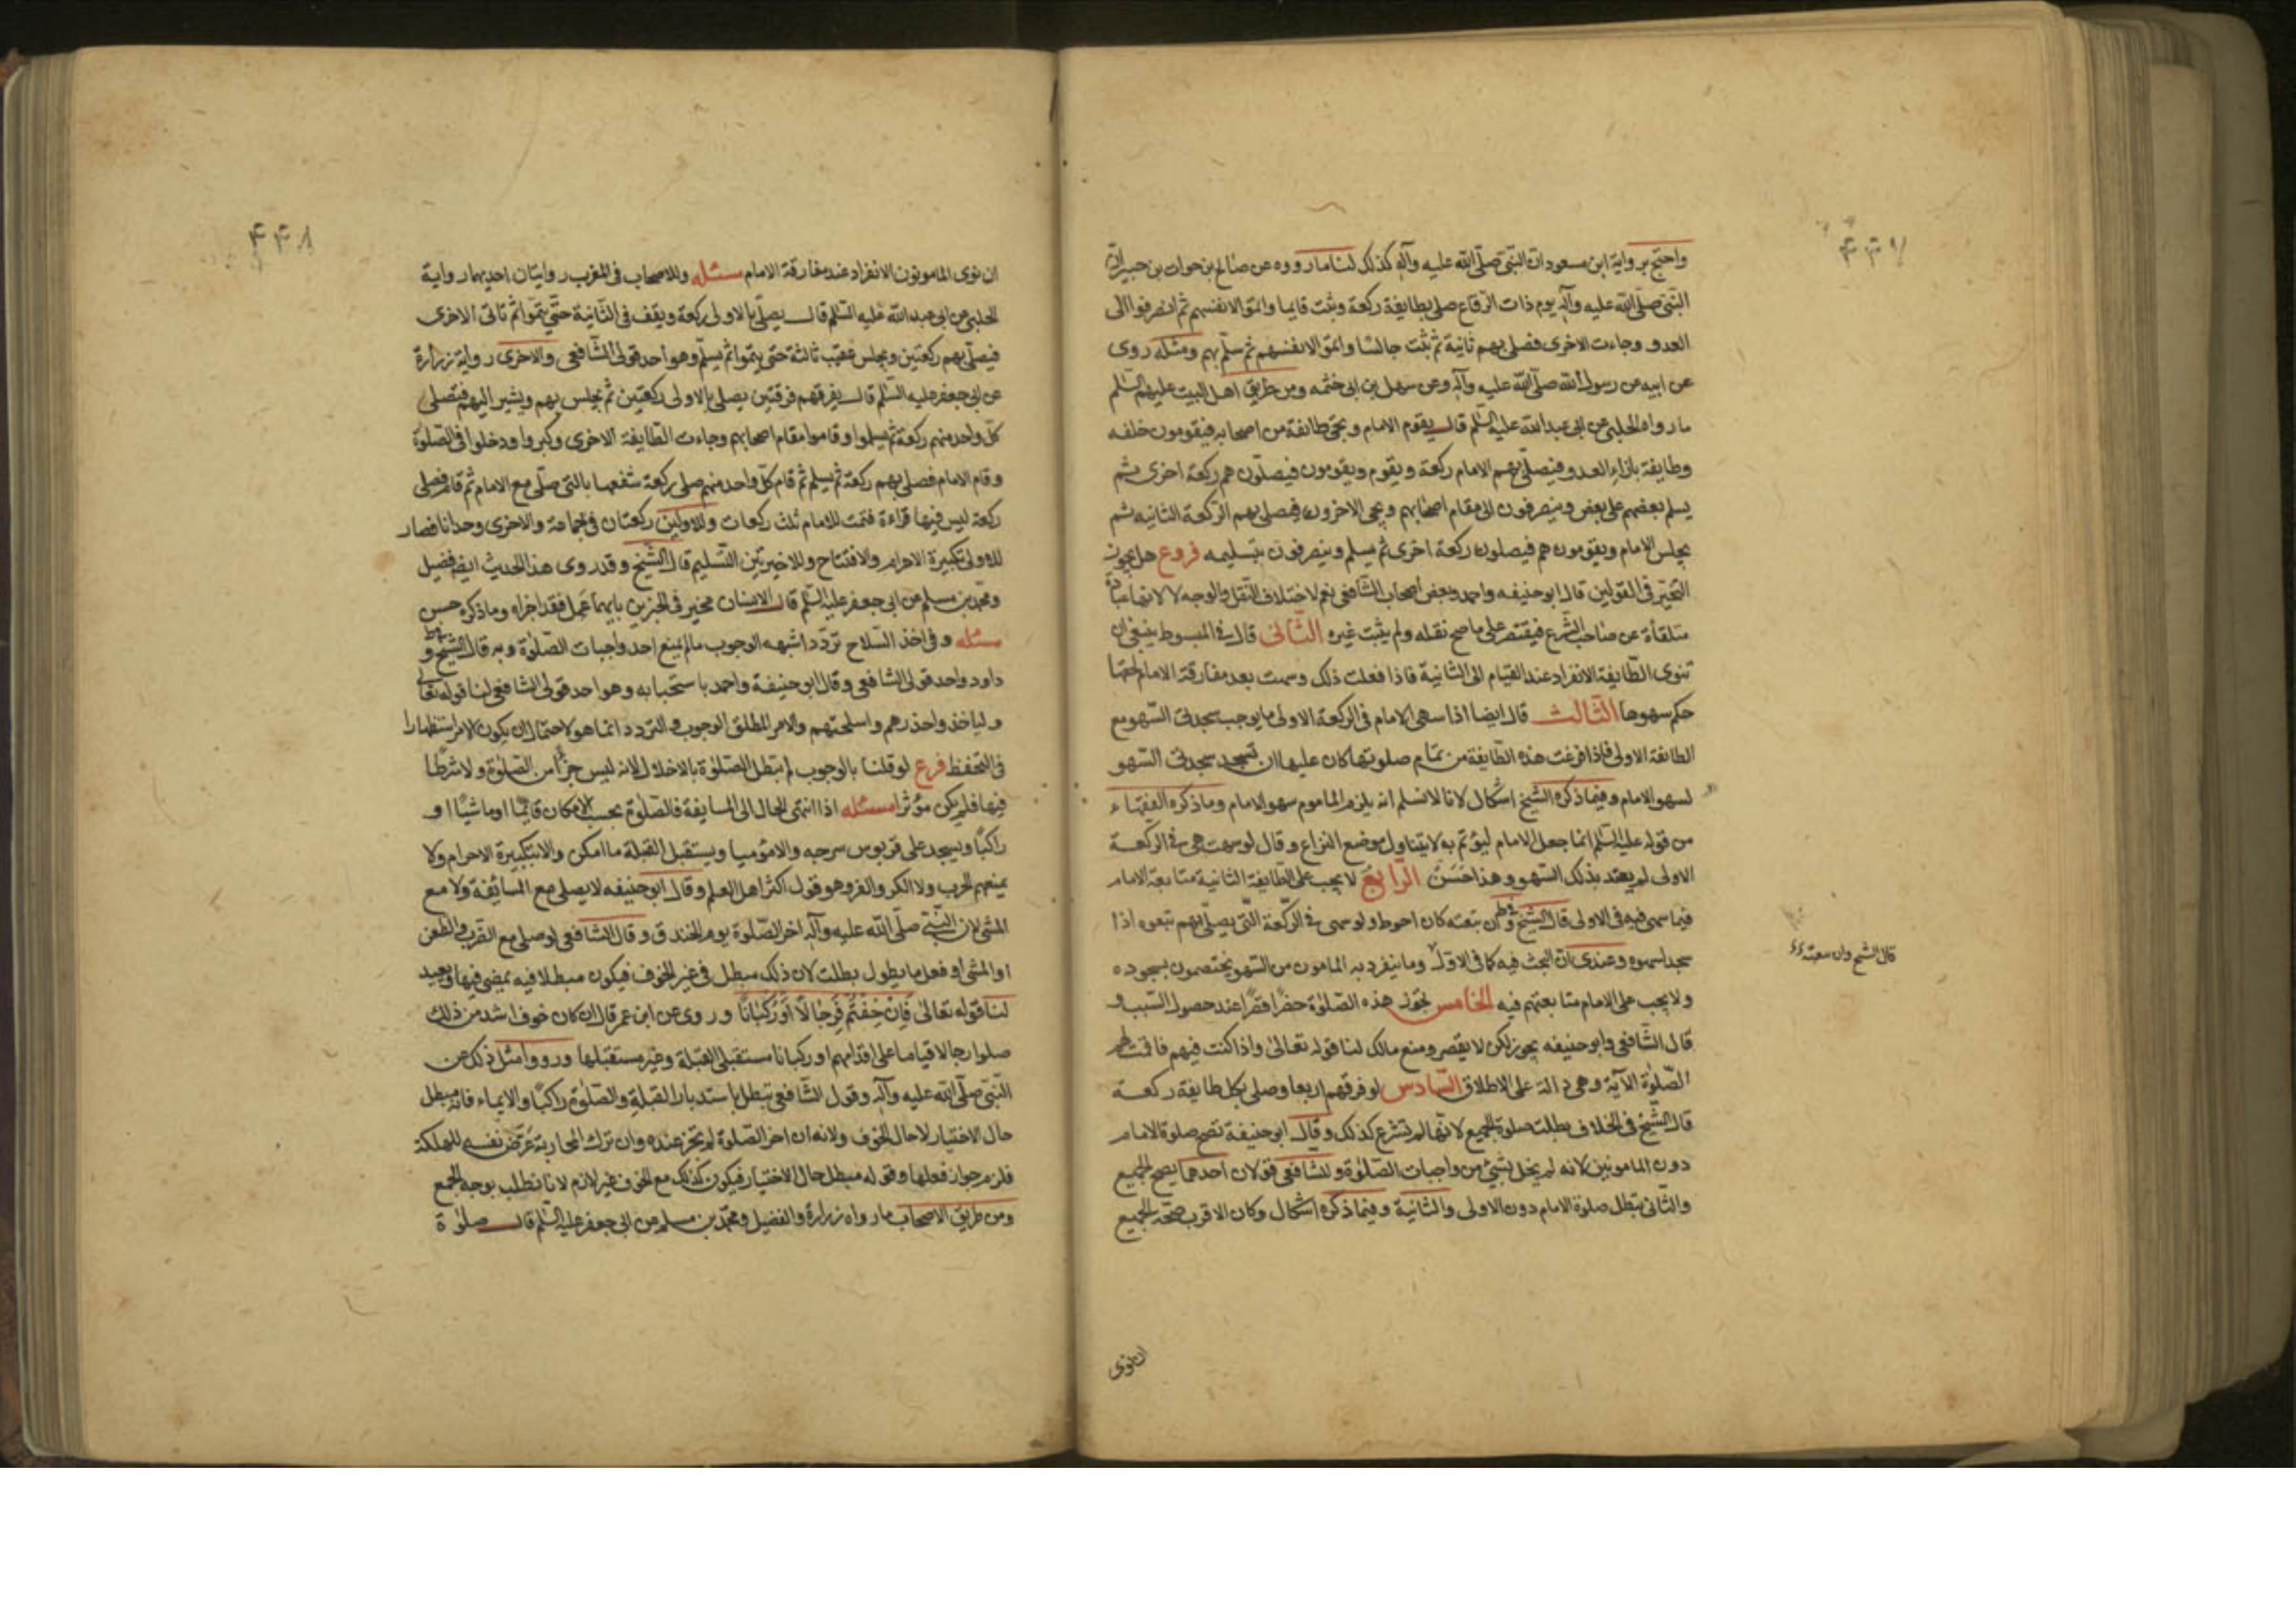 ۴۴۷
واحتج برواية ابن مسعود ان النبي صلى الله عليه وآله كذلك لنا ما رووه عن صالح بن خوات بن جبير ان
النبي صلى الله عليه وآله يوم ذات الرقاع صلى بطايفة ركعة وثبت قايما واتموا لانفسهم ثم انصرفوا الى
العدو وجاءت الاخرى فصلى بهم ثانية ثم ثبت جالسا واتموا لانفسهم ثم سلم بهم ومثله روى
عن ابيه عن رسول الله صلى الله عليه وآله وعن سهل بن ابى خثمه ومن طريق اهل البيت عليهم السلم
ما رواه الحلبى عن ابى عبدالله عليه السلم قال يقوم الامام ويجئ طائفة من اصحابه فيقومون خلفه
وطايفة بازاء العدو فيصلى بهم الامام ركعة ويقوم ويقومون فيصلون هم ركعة اخرى ثم
يسلم بعضهم على بعض وينصرفون الى مقام اصحابهم ويجئ الاخرون فيصلى بهم الركعة الثانيه ثم
يجلس الامام ويقومون هم فيصلون ركعة اخرى ثم يسلم وينصرفون بتسليمه فروع هل يجوز
التخير فى القولين قال ابو حنيفه واحمد وبعض اصحاب الشافعى نعم لاختلاف النقل والوجه لا لانها عبادة
متلقاة عن صاحب الشرع فيقتصر على ما صح نقله ولم يثبت غيره الثانى قال فى المبسوط ينبغى ان
تنوى الطايفة الانفراد عند القيام الى الثانية فاذا فعلت ذلك وسهت بعد مفارقة الامام لحقها
حكم سهوها الثالث قال ايضا اذا سهى الامام فى الركعة الاولى ما يوجب سجدتى السهو مع
الطائفة الاولى فاذا فرغت هذه الطايفة من تمام صلوتها كان عليها ان تسجد سجدتى السهو
لسهو الامام وفيما ذكره الشيخ اشكال لانا لا نسلم انه يلزم الماموم سهو الامام وما ذكره الفقهاء
من قوله عليه السلم انما جعل الامام ليؤتم به لا يتناول موضع النزاع وقال لو سهت هى فى الركعة
الاولى لم يعتد بذلك السهو وهذا حسن الرابع لا يجب على الطايفة الثانية متابعة الامام
فيما سهى فيه فى الاولى قال الشيخ وان تبعته كان احوط ولو سهى فى الركعة التى يصلى بهم تبعوه اذا
سجد لسهوه وعندى ان البحث فيه كما فى الاول وما ينفرد به المامون من السهو يختصمون بسجوده
ولا يجب على الامام متابعتهم فيه الخامس تجوز هذه الصلوة حضرا قصرا عند حصول السبب و
قال الشافعى وابو حنيفه يجوز لكن لا يقصر ومنع مالك لنا قوله تعالى واذا كنت فيهم فاقمت لهم
الصلوة الآية وهى دالة على الاطلاق السادس لو فرقهم اربعا وصلى بكل طايفة ركعة
قال الشيخ فى الخلاف بطلت صلوة الجميع لانها لم تشرع كذلك وقال ابو حنيفة تصح صلوة الامام
دون المامونين لانه لم يخل بشئ من واجبات الصلوة وللشافعى قولان احدهما يصح الجميع
والثانى تبطل صلوة الامام دون الاولى والثانية وفيما ذكره اشكال وكان الاقرب صحة الجميع
قال الشيخ وان تبعته
ان نوى
۴۴۸
ان نوى المامونون الانفراد عند مفارقة الامام مسئله وللاصحاب فى المغرب روايتان احديهما رواية
الحلبى عن ابى عبدالله عليه السلم قال يصلى بالاولى ركعة ويقف فى الثانية حتى يتموا ثم تاتى الاخرى
فيصلى بهم ركعتين ويجلس عقيب ثالثة حتى يتموا ثم يسلم وهو احد قولى الشافعى والاخرى رواية زرارة
عن ابى جعفر عليه السلم قال يفرقهم فرقتين يصلى بالاولى ركعتين ثم يجلس بهم ويشير اليهم فيصلى
كل واحد منهم ركعة ثم يسلموا وقاموا مقام اصحابهم وجاءت الطايفة الاخرى وكبروا ودخلوا فى الصلوة
وقام الامام فصلى بهم ركعة ثم يسلم ثم قام كل واحد منهم صلى ركعة شفعها بالتى صلى مع الامام ثم قام فصلى
ركعة ليس فيها قراءة فتمت للامام ثلث ركعات وللاولين ركعتان فى جماعة والاخرى وحدانا فصار
للاولى تكبيرة الاحرام والافتتاح وللاخيرتين التسليم قال الشيخ وقد روى هذا الحديث ايض فضيل
ومحمد بن مسلم عن ابى جعفر عليه السلم قال الانسان مخير فى الخبرين بايهما عمل فقد اجزاه وما ذكره حسن
مسئله وفى اخذ السلاح تردد اشبهه الوجوب ما لم يمنع احد واجبات الصلوة وبه قال الشيخ فى ط و
داود واحد قولى الشافعى وقال ابو حنيفة واحمد باستحبابه وهو احد قولى الشافعى لنا قوله تعالى
ولياخذوا حذرهم واسلحتهم والامر المطلق الوجوب والتردد انما هو لاحتمال ان يكون الامر استظهارا
فى التحفظ فرع لو قلنا بالوجوب لم تبطل الصلوة بالاخلال لانه ليس جزأ من الصلوة ولا شرطا
فيها فلم يكن مؤثرا مسئله اذا انتهى الحال الى المسايفة فالصلوة بحسب الامكان قايما او ماشيا او
راكبا ويسجد على قربوس سرجه والا موميا ويستقبل القبلة ما امكن والا بتكبيرة الاحرام ولا
يمنعهم الحرب ولا الكر والفر وهو قول اكثر اهل العلم وقال ابو حنيفه لا يصلى مع المسائفة ولا مع
المشى لان النبى صلى الله عليه وآله اخر الصلوة يوم الخندق وقال الشافعى لو صلى مع الضرب والطعن
او المشى او فعل ما يطول بطلت لان ذلك مبطل فى غير الخوف فيكون مبطلا فيه يمضى فيها ويعيد
لنا قوله تعالى فان خفتم فرجالا او ركبانا وروى عن ابن عمر قال ان كان خوف اشد من ذلك
صلوا رجالا قياما على اقدامهم او ركبانا مستقبلى القبلة وغير مستقبلها ورووا مثل ذلك عن
النبى صلى الله عليه وآله وقول الشافعى تبطل باستدبار القبلة والصلوة راكبا والايماء فانه مبطل
حال الاختيار لا حال الخوف ولانه ان اخر الصلوة لم تجز عنده وان ترك المحاربة عرض نفسه للمهلكة
فلزم جواز فعلها وقوله مبطل حال الاختيار فيكون كذلك مع الخوف غير لازم لانا نطلب بوجه الجمع
ومن طريق الاصحاب ما رواه زرارة والفضيل ومحمد بن مسلم عن ابى جعفر عليه السلم قال صلوة